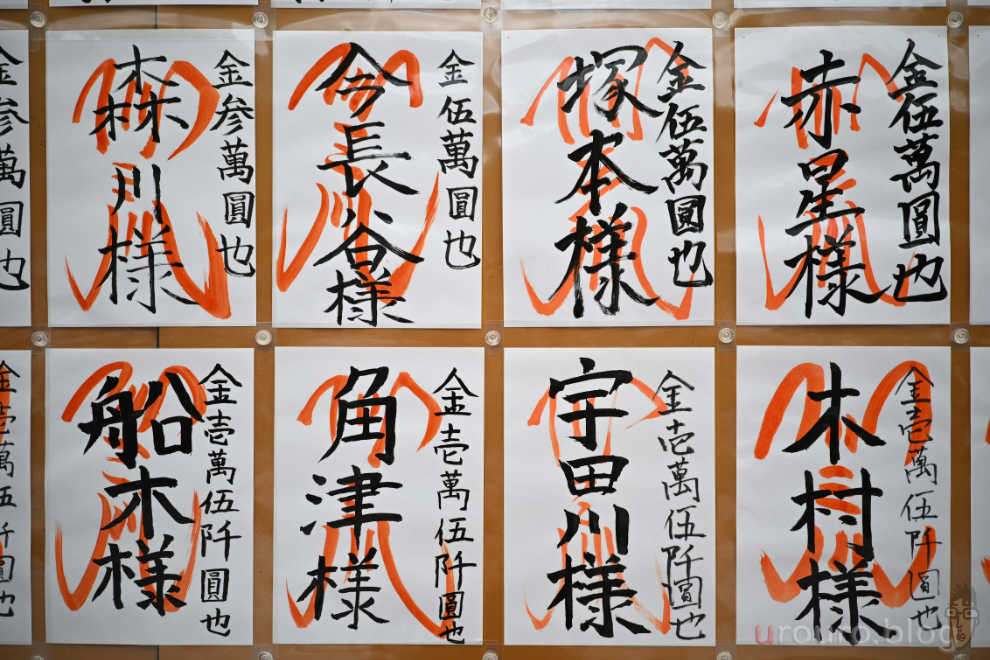 金伍萬圓也
赤星様
金伍萬圓也
塚本様
金伍萬圓也
今長谷様
金参萬圓也
森川様
金参萬圓也
金壱萬伍阡圓也
木村様
金壱萬伍阡圓也
宇田川様
金壱萬伍阡圓也
角津様
金壱萬伍阡圓也
船木様
urouro.blog